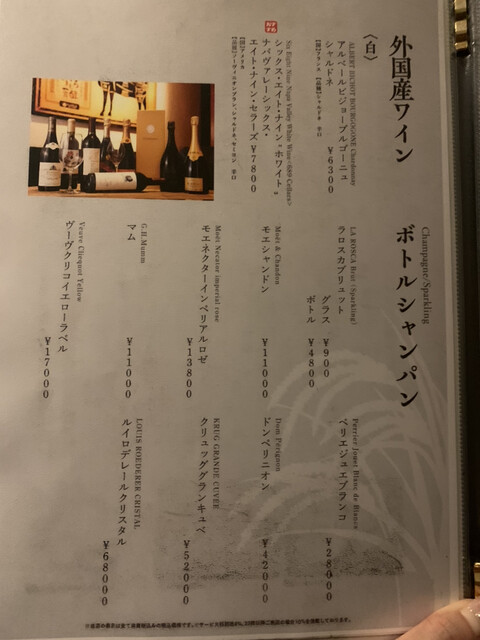 外国産ワイン
〈白〉
ALBERT BICHOT BOURGOGNE Chardonnay
アルベールビジョーブルゴーニュ
シャルドネ ¥6300
【国】フランス 【品種】シャルドネ 辛口
おすすめ
Six Eight Nine Napa Valley White Wine<689 Cellars>
シックス・エイト・ナイン "ホワイト"
ナパヴァレーシックス・
エイト・ナイン・セラーズ ¥7800
【国】アメリカ
【品種】ソーヴィニヨンブラン、シャルドネ、セーヨン 辛口
Champagne/Sparkling
ボトルシャンパン
LA ROSCA Brut (Sparkling)
ラロスカブリュット
グラス ¥900
ボトル ¥4800
Moët & Chandon
モエシャンドン
¥11000
Moët Nectar imperial rose
モエネクターインペリアルロゼ
¥13800
G.H.Mumm
マム
¥11000
Veuve Clicquot Yellow
ヴーヴクリコイエローラベル
¥17000
Perrier Jouet Blanc de Blancs
ペリエジュエブランコ
¥28000
Dom Perignon
ドンペリニオン
¥42000
KRUG GRANDE CUVÉE
クリュッググランキュベ
¥52000
LOUIS ROEDERER CRISTAL
ルイロデレールクリスタル
¥68000